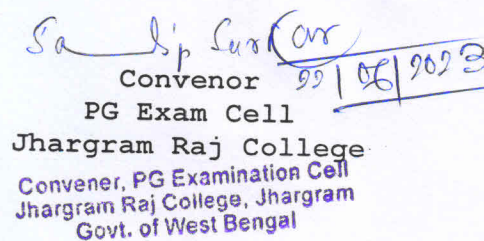 Sandip Sarkar
22/06/2023
Convenor
PG Exam Cell
Jhargram Raj College
Convener, PG Examination Cell
Jhargram Raj College, Jhargram
Govt. of West Bengal